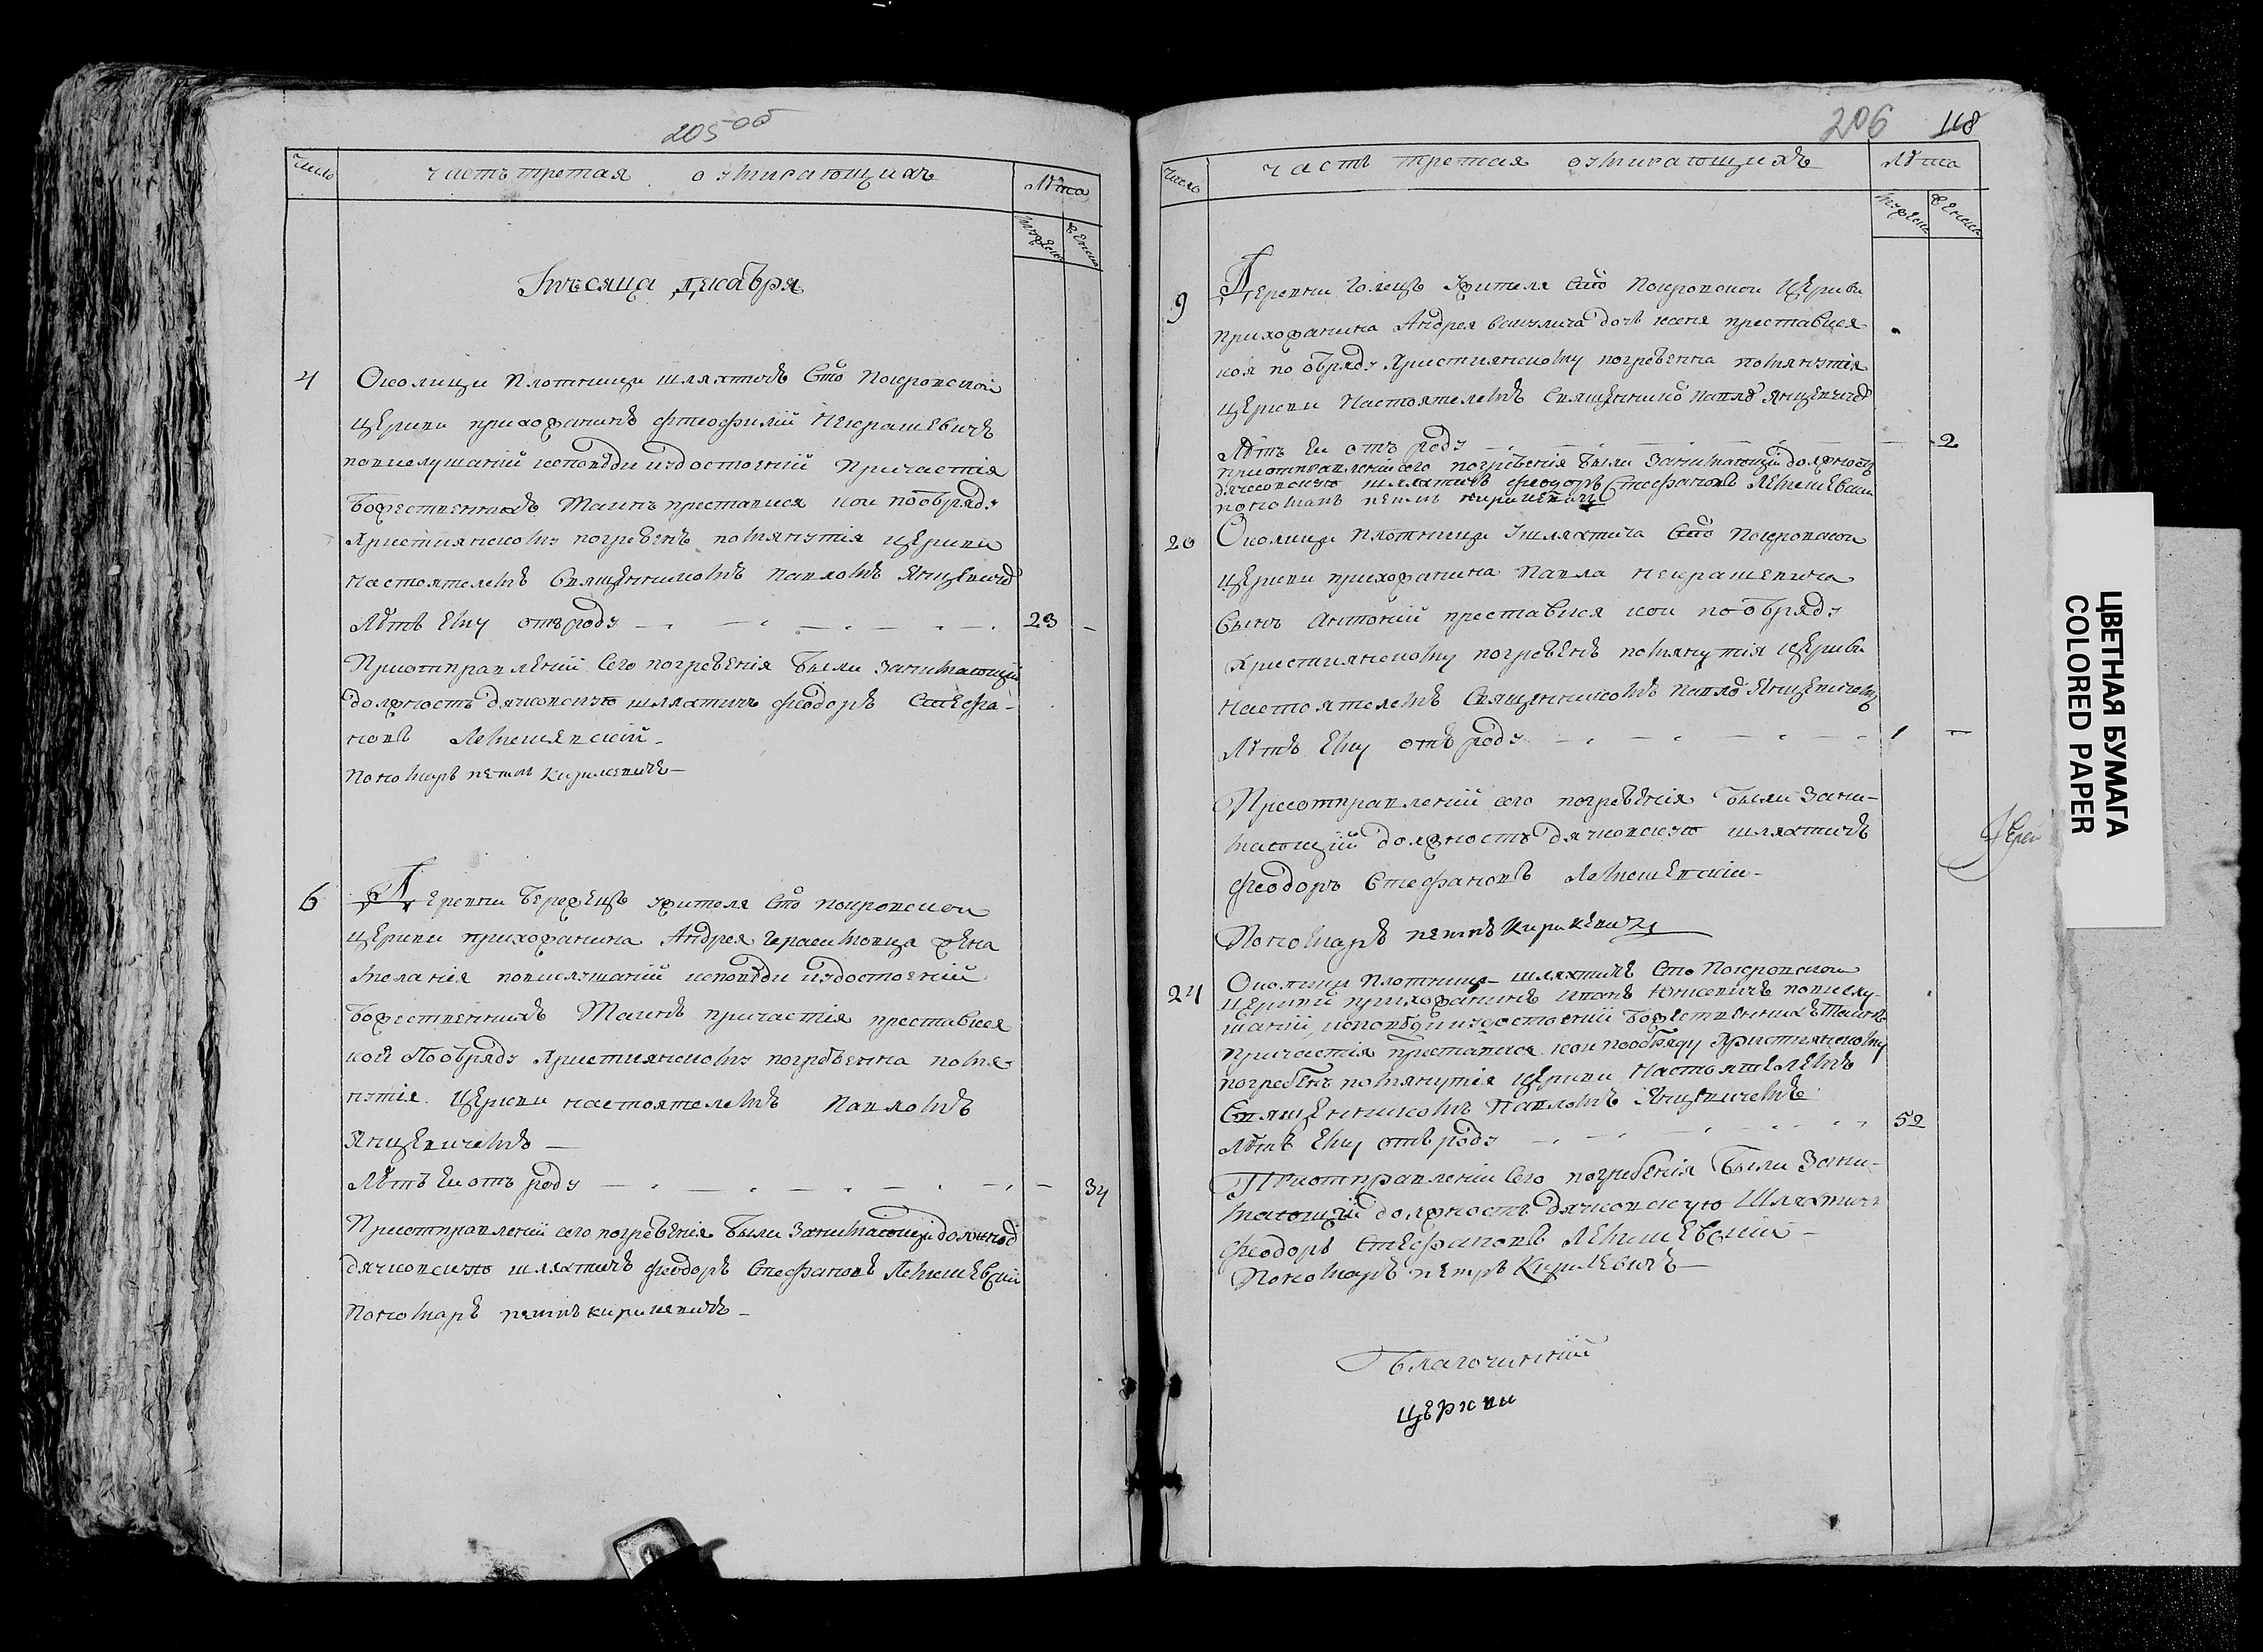 205 об
Число
часть третая о умирающихъ
Лѣта
мужеска
женска
Мѣсяца декабря
4
Околици Плотници шляхтичъ Сто Покровской
церкви прихожанинъ Феофилій Некрашевичъ
повислушаній исповѣди иудостоеній Причастія
Божественныхъ Таинъ преставися кои пообряду
Християнскому погребенъ помянутія церкви
настоятелемъ Священникомъ Павломъ Янцевичъ
Лѣтъ Ему отъ роду 23
Приотправленіи сего погребенія были занимающій
должность дячковскую шляхтичъ Феодоръ Стефа-
новъ Лемешевскій
Пономаръ петръ Кирикевичъ
6
Деревни Бережецъ жителя Сто покровской
церкви прихожанина Андрея Герасимовца жена
Меланія повислушаній исповѣди иудостоеній
Божественныхъ Таинъ причастія преставися
кой Пообряду Християнскому погребенна помя-
нутія церкви настоятелемъ Павломъ
Янцевичемъ
Лѣтъ Еи отъ роду 34
Приотправленіи сего погребенія были Занимающій должност
дячковскую шляхтичъ Феодоръ Стефановъ Лемешевскій
Пономаръ петръ кирикевичъ
206 118
Число
часть третая о умирающихъ
Лѣта
мужеска
женска
9
Деревни Голецъ жителя Сто Покровской Церкви
прихожанина Андрея дочь ксеня преставися
коя по обряду Християнскому погребенна помянутія
церкви Настоятелемъ Священнико Павло Янцевичо
Лѣтъ Еи отъ роду 2
приотправленіи сего погребенія были Занимающій должность
дячковскую шляхтичъ Феодоръ Стефановъ Лемешевски
пономаръ петръ кирикевичъ
20
Околици Плотници шляхтича Сто Покровской
церкви прихожанина Павла Некрашевича
Сынъ Антоній преставися кои пообряду
Християнскому погребенъ помянутія церкви
настоятелемъ Священникомъ Павло Янцевичомъ
Лѣтъ Ему отъ роду 1
Приотправленіи сего погребенія были Зани-
мающій должность дячковскую шляхтичъ
Феодоръ Стефановъ Лемешевскіи
Пономаръ петръ Кирикевичъ
Іерей
24
Околици Плотници шляхтичъ Сто Покровской
Церкви прихожанинъ Иванъ Юнкевичъ повислу-
шаній исповѣди иудостоеній Божественнихъ Таинъ
причастія преставися кои пообряду Християнскому
погребенъ помянутія церкви Настоятелемъ
Священникомъ Павломъ Янцевичемъ
Лѣтъ Ему отъ роду 52
Приотправленіи Сего погребенія были Зани-
мающій должность дячковскую Шляхтичъ
Феодоръ Стефановъ Лемешевскій
Пономаръ петръ Кирикевичъ
Благочинній
церкви
ЦВЕТНАЯ БУМАГА
COLORED PAPER